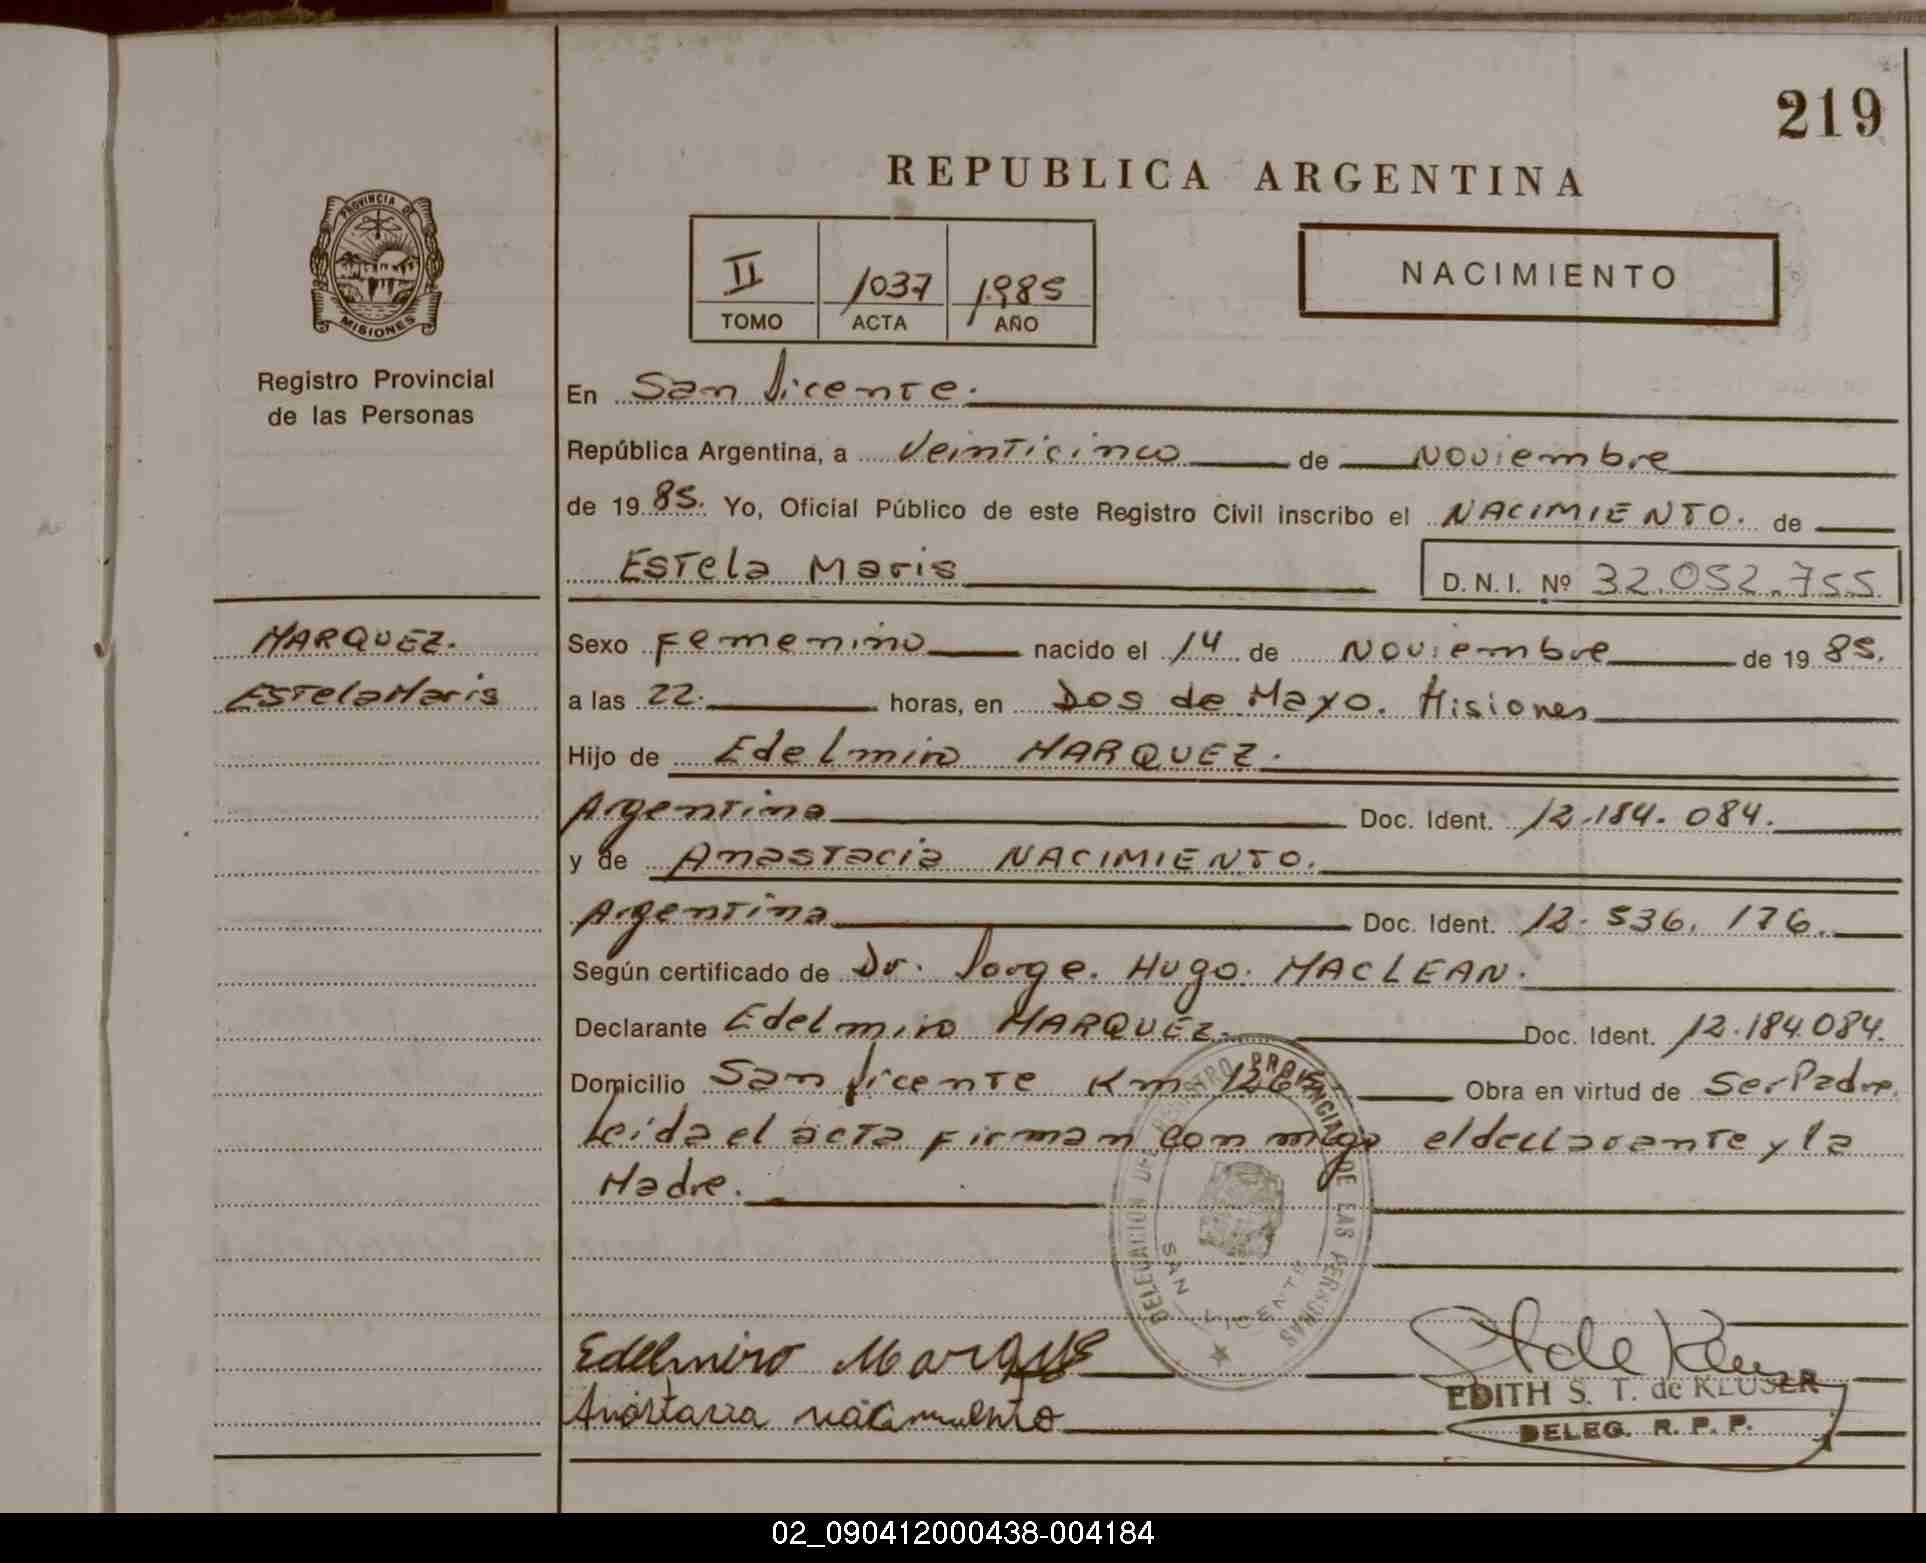 219
REPUBLICA ARGENTINA
PROVINCIA DE
MISIONES
Registro Provincial
de las Personas
II 1037 1985
TOMO ACTA AÑO
NACIMIENTO
En San Vicente.
República Argentina, a Veinticinco de Noviembre
de 19 85. Yo, Oficial Público de este Registro Civil inscribo el NACIMIENTO. de
Estela Maris D. N. I. Nº 32.052.755
MARQUEZ.
Estela Maris
Sexo Femenino nacido el 14 de Noviembre de 19 85.
a las 22. horas, en Dos de Mayo. Misiones
Hijo de Edelmiro MARQUEZ.
Argentina Doc. Ident. 12.184.084.
y de Anastacia NACIMIENTO.
Argentina Doc. Ident. 12.536.176.
Según certificado de Dr. Jorge. Hugo. MACLEAN.
Declarante Edelmiro MARQUEZ. Doc. Ident. 12.184.084.
Domicilio San Vicente Km Obra en virtud de Ser Padre.
Leida el acta firman con migo el declarante y la
Madre.
DELEGACION DEL REGISTRO PROVINCIAL DE LAS PERSONAS
SAN VICENTE
Edelmiro Marque
Anastacia nacimiento
EDITH S. T. de KLUSER
DELEG. R. P. P.
02_090412000438-004184